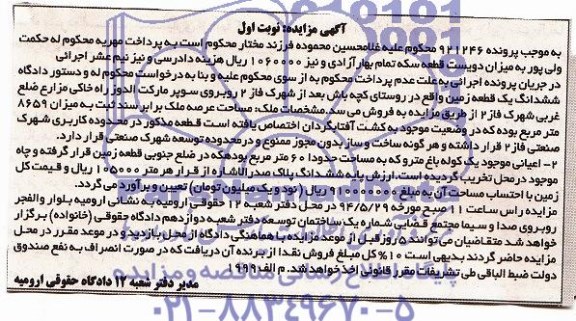 آگهی مزایده: نوبت اول
به موجب پرونده ۹۲۱۲۴۶ محکوم علیه غلامحسین محموده فرزند مختار محکوم است به پرداخت مهریه محکوم له حکمت
ولی پور به میزان دویست قطعه سکه تمام بهار آزادی و نیز ۱۰۶۰۰۰۰ ریال هزینه دادرسی و نیز نیم عشر اجرائی
در جریان پرونده اجرائی به علت عدم پرداخت محکوم به از سوی محکوم علیه و بنا به درخواست محکوم له و دستور دادگاه
ششدانگ یک قطعه زمین واقع در روستای کچه باش بعد از شهرک فاز ۲ روبروی سوپر مارکت الدوز راه خاکی مزارع ضلع
غربی شهرک فاز ۲ از طریق مزایده به فروش می رسد. مشخصات ملک: مساحت عرصه ملک برابر سند ثبت به میزان ۸۶۵۹
متر مربع بوده که در وضعیت موجود به کشت آفتابگردان اختصاص یافته است قطعه مذکور در محدوده کاربری شهرک
صنعتی فاز ۲ قرار داشته و هر گونه ساخت و ساز بدون مجوز ممنوع و در محدوده توسعه شهرک صنعتی قرار دارد.
۲- اعیانی موجود یک کوله باغ مترو که به مساحت حدودا ۶۰ متر مربع بوده که در ضلع جنوبی قطعه زمین قرار گرفته و چاه
موجود در محل تخریب گردیده است. ارزش پایه ششدانگ پلاک صدرالاشاره از قرار هر متر ۱۰۵۰۰۰ ریال و قیمت کل
زمین با احتساب مساحت آن به مبلغ ۹۱۰۰۰۰۰۰۰ ریال (نود و یک میلیون تومان) تعیین و برآورد می گردد.
مزایده راس ساعت ۱۱ صبح مورخه ۹۴/۵/۲۹ در محل دفتر شعبه ۱۲ حقوقی ارومیه به نشانی ارومیه بلوار والفجر
روبروی صدا و سیما مجتمع قضایی شماره یک ساختمان توسعه دفتر شعبه دوازدهم دادگاه حقوقی (خانواده) برگزار
خواهد شد متقاضیان می توانند ۵ روز قبل از موعد مزایده با هماهنگی دادگاه از محل بازدید و در موعد مقرر در محل
مزایده حاضر گردند بدیهی است ۱۰٪ کل مبلغ فروش نقدا از برنده آن دریافت که در صورت انصراف به نفع صندوق
دولت ضبط الباقی طی تشریفات مقرر قانونی اخذ خواهد شد. م الف ۱۹۹۹
مدیر دفتر شعبه ۱۲ دادگاه حقوقی ارومیه
۰۲۱-۸۸۳۴۹۶۷۰-۵